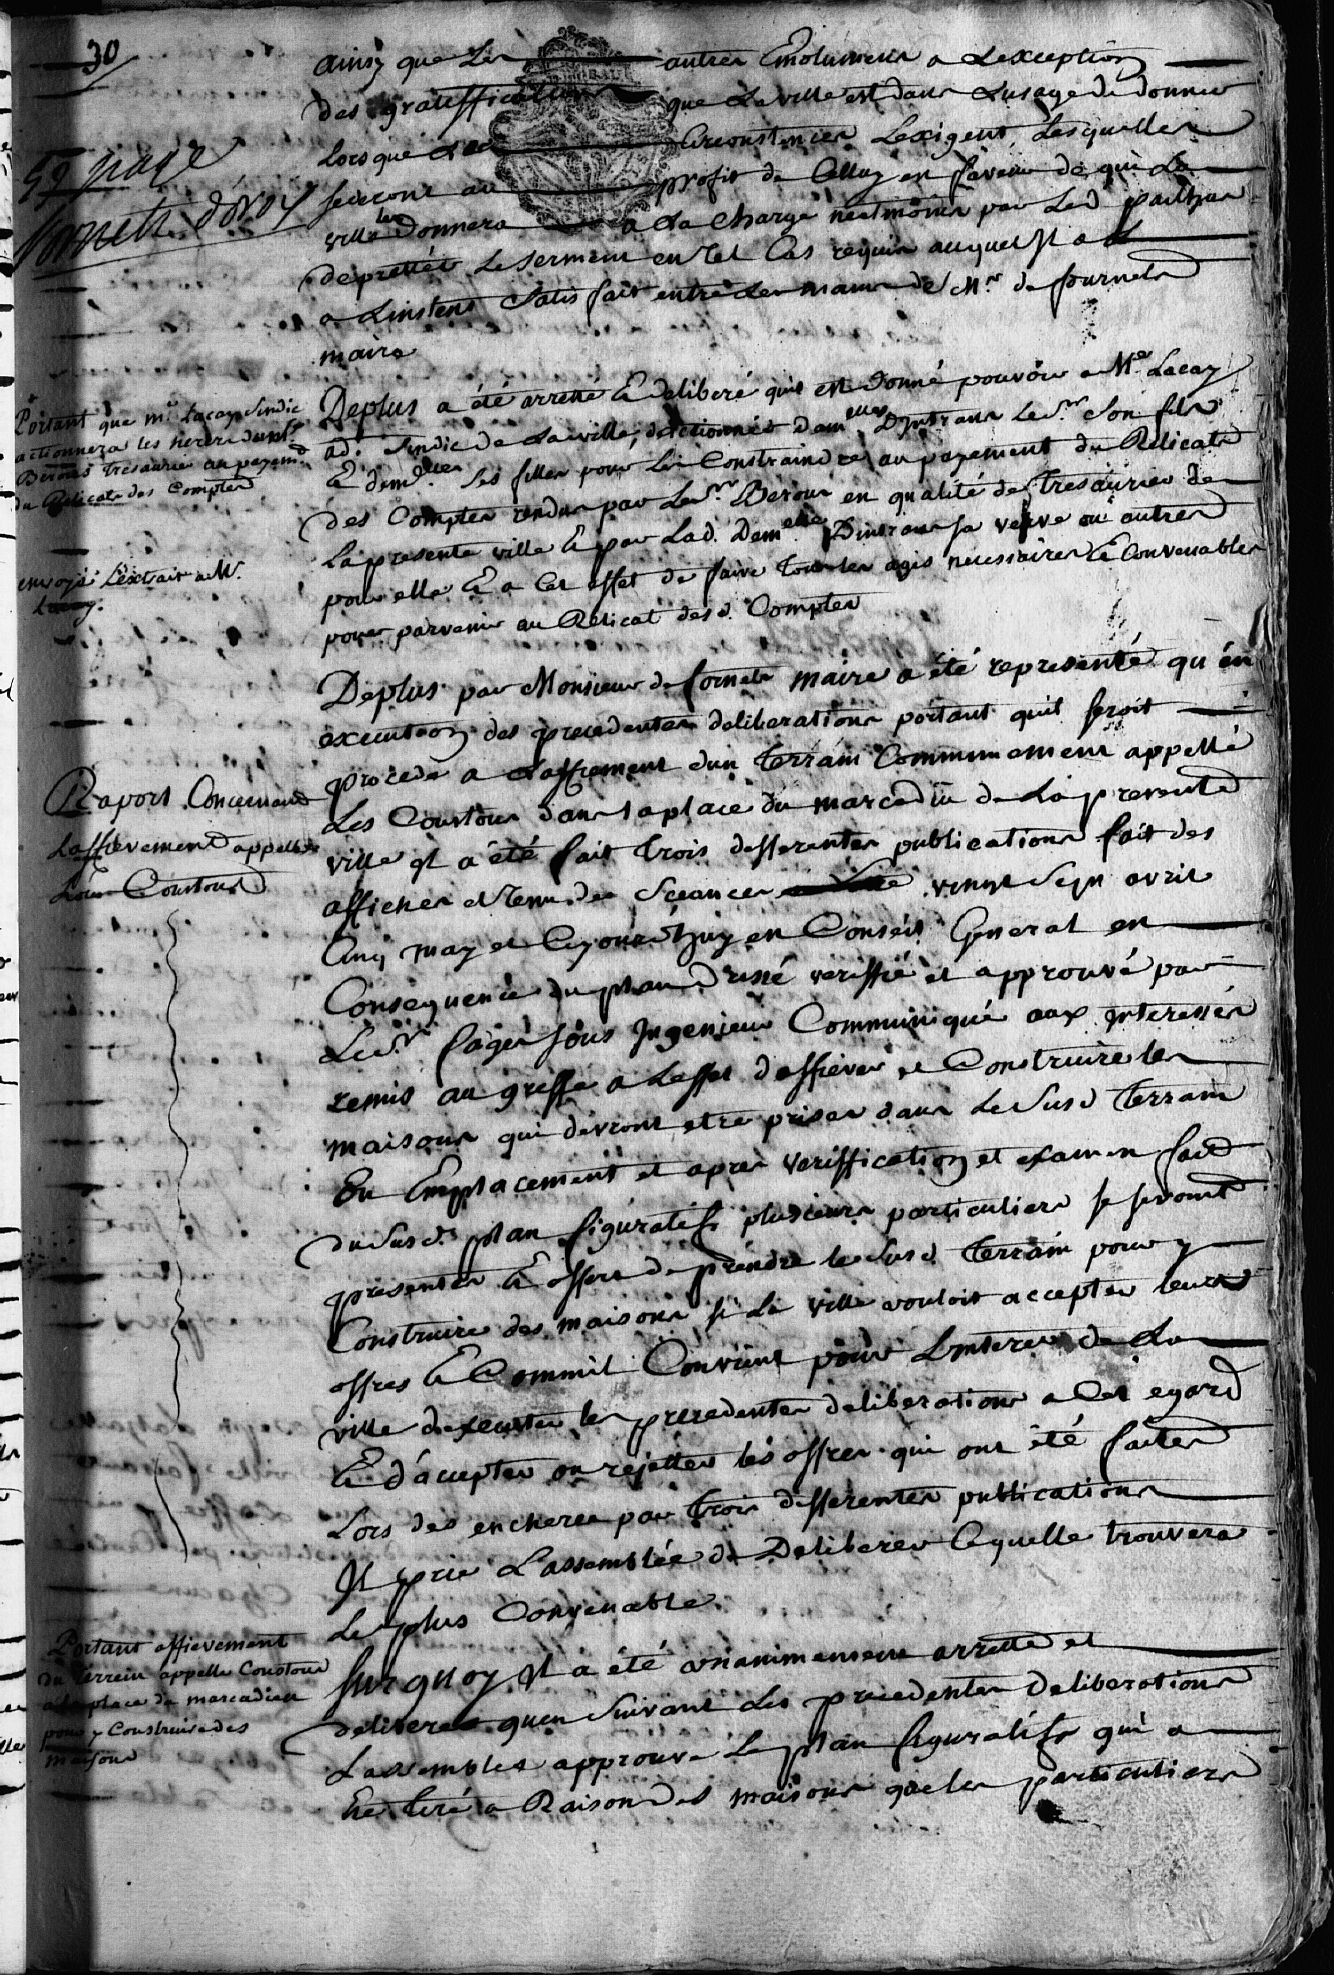 30
59 page
ainsy que les autres Emolumens a Lexception
des gratiffications que La ville est dans Lusage de donner
Lorsque Les Circonstences Lexigent, Lesquelles
seront au profit de Celluy en faveur de qui La
ville les Donnera a La charge neatmoins par Led
de pretter Le serment en tel Cas requis auquel Il a
a Linstent satisfait entre Les mains de Mr. de fournets
maire
Portant que mr. Lacay Sindic
actionnera les heretiers dusr.
Berous Tresaurier au payemt.
du Relicat des Comptes
envoyé L'extrait a Mr.
Lacay.
Deplus a été arretté & deliberé quil est donné pouvoir a Mr. Lacay
ad. Sindic de La ville, dactionner Damelles Dintrans Le Sr. Son fils
& demlles. ses filles pour Les Constraindre au payement du Relicat
des Comptes rendus par Le Sr. Berous en qualité de Tresaurier de
La presente ville & par Lad. Damelle Dintrans sa veuve ou autres
pour elle & a Cet effet de faire tous les agis necessaires & Convenables
pour parvenir au Relicat desd. Comptes
Raport Concernant
Laffievement appellés
Lous Coustous
Deplus par Monsieur de fornets maire a été representé qu'en
execution des precedentes deliberations portant quil seroit
procede a Laffievement dun terrain Communement appellé
Les Coustous dans la place du marcadiu de La presente
ville Il a été fait trois differentes publications fait des
affiches et tenu des Sceances vingt Sept avril
Cinq may et Cejourd'huy en Conseil General en
Consequence du plan dressé veriffié et approuvé par
Le Sr. sous Ingenieur Communiqué aux Interessés
remis au greffe a Leffet daffiever et Construire les
maisons qui devront etre prises dans Le Susd Terrain
En Emplacement et apres veriffication et examen fait
du Susd. plan figuratif plusieurs particuliers se seroint
presentés & offert de prendre le Susd Terrain pour y
Construire des maisons si La ville vouloit accepter leurs
offres & Commil Convient pour Linteret de La
ville dexecuter les precedentes deliberations a Cet egard
& d'accepter ou rejetter les offres qui ont été faites
Lors des encheres par trois differentes publications
Il prie L'assemblée de Deliberer Cequelle trouvera
Le plus Convenable.
Portant affievement
du terrein appelle Coustous
a la place de marcadieu
pour y Construire des
maisons
sur quoy Il a été unanimement arretté et
deliberé quen Suivant Les precedentes Deliberations
Lassemblée approuve Le plan figuratif qui a
ete tiré a Raison des maisons que les particuliers